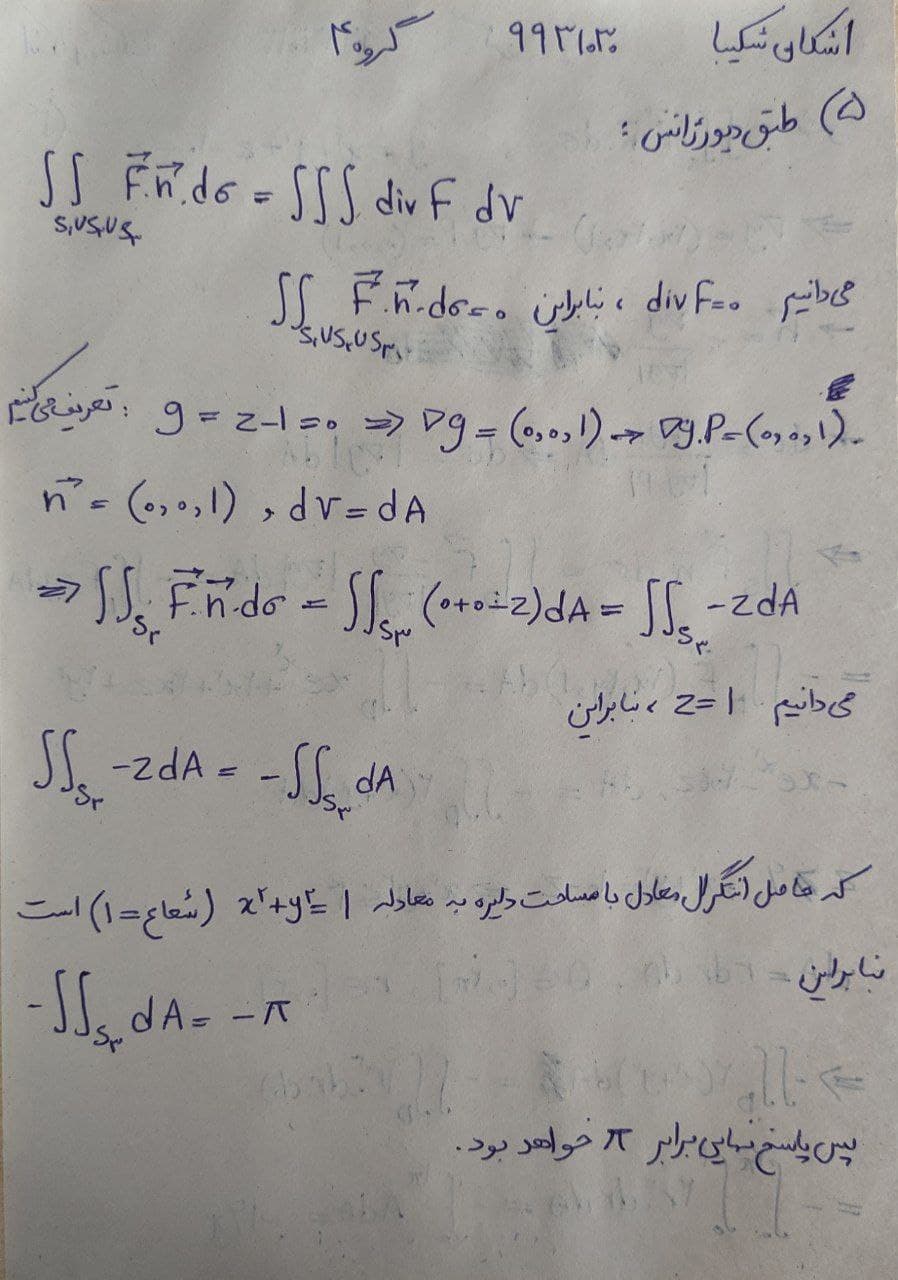 اشکان شکیبا ۹۹۳۱۰۳۰ گروه ۴
۵) طبق دیورژانس :
∬_{S₁∪S₂∪S₃} F⃗.n⃗.dσ = ∭ div F dV
می‌دانیم div F=0 ، بنابراین ∬_{S₁∪S₂∪S₃} F⃗.n⃗.dσ=0
تعریف می‌کنیم : g = z-1=0 ⇒ ∇g = (0,0,1) → ∇g.P=(0,0,1).
n⃗ = (0,0,1) , dV = dA
⇒ ∬_{S₃} F⃗.n⃗.dσ = ∬_{S₃} (0+0-z)dA = ∬_{S₃} -z dA
می‌دانیم z=1 ، بنابراین
∬_{S₃} -z dA = -∬_{S₃} dA
که حاصل انتگرال معادل با مساحت دایره به معادله x²+y²=1 (شعاع=1) است
بنابراین
-∬_{S₃} dA = -π
پس پاسخ نهایی برابر π خواهد بود.